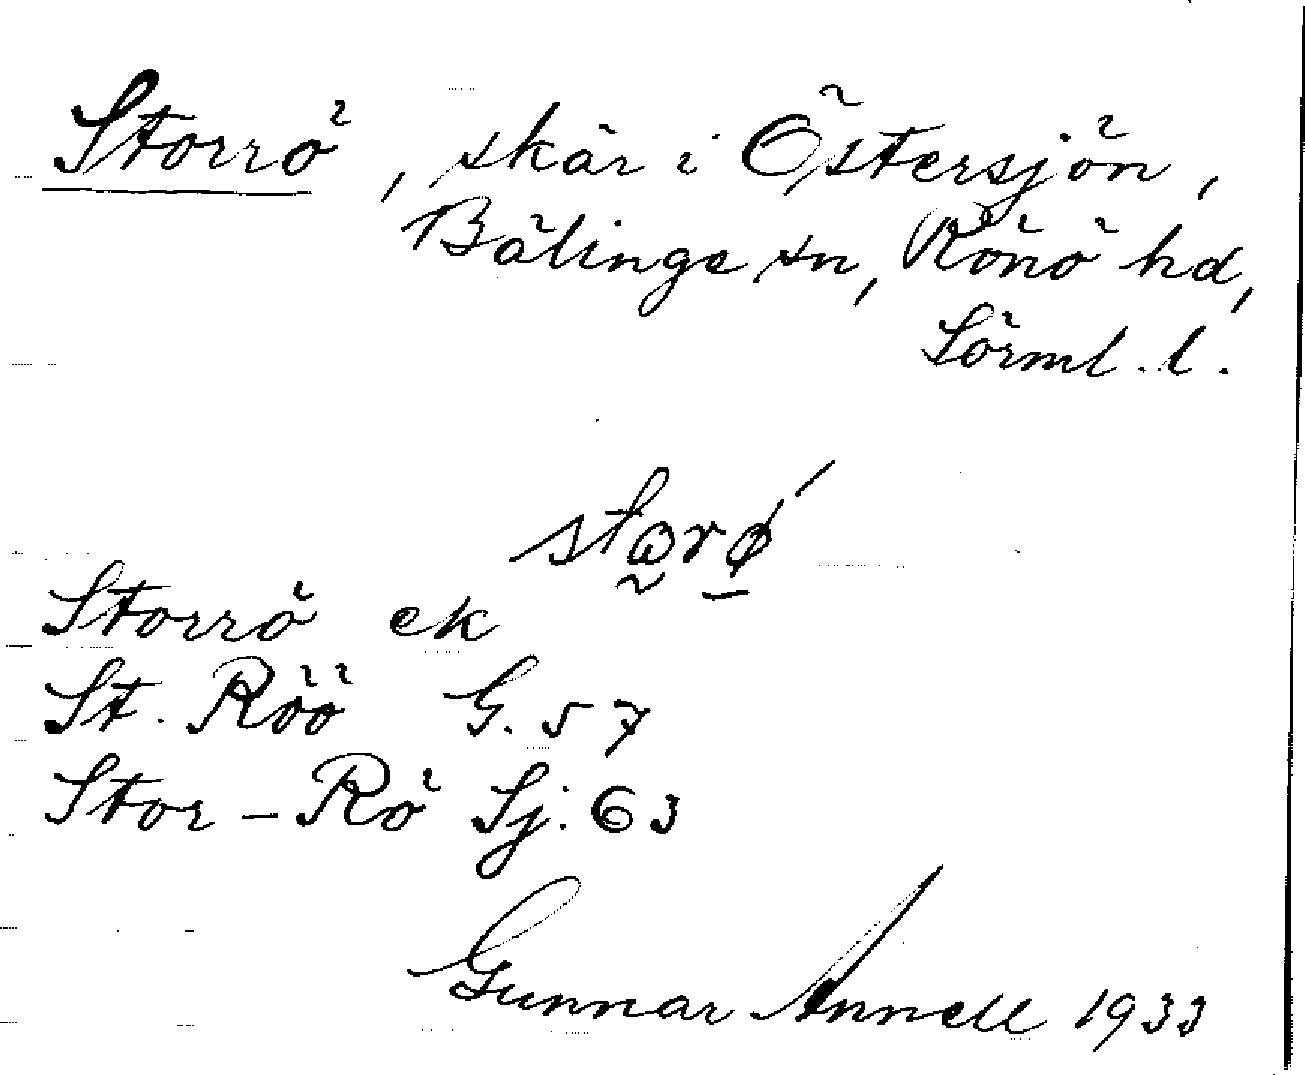 Storrö, skär i Östersjön,
Bälinge sn, Rönö hd,
Sörml. l.
storǿ̱
Storrö ek
St. Röö G. 57
Stor-Rö Sj. 63
Gunnar Annell 1933